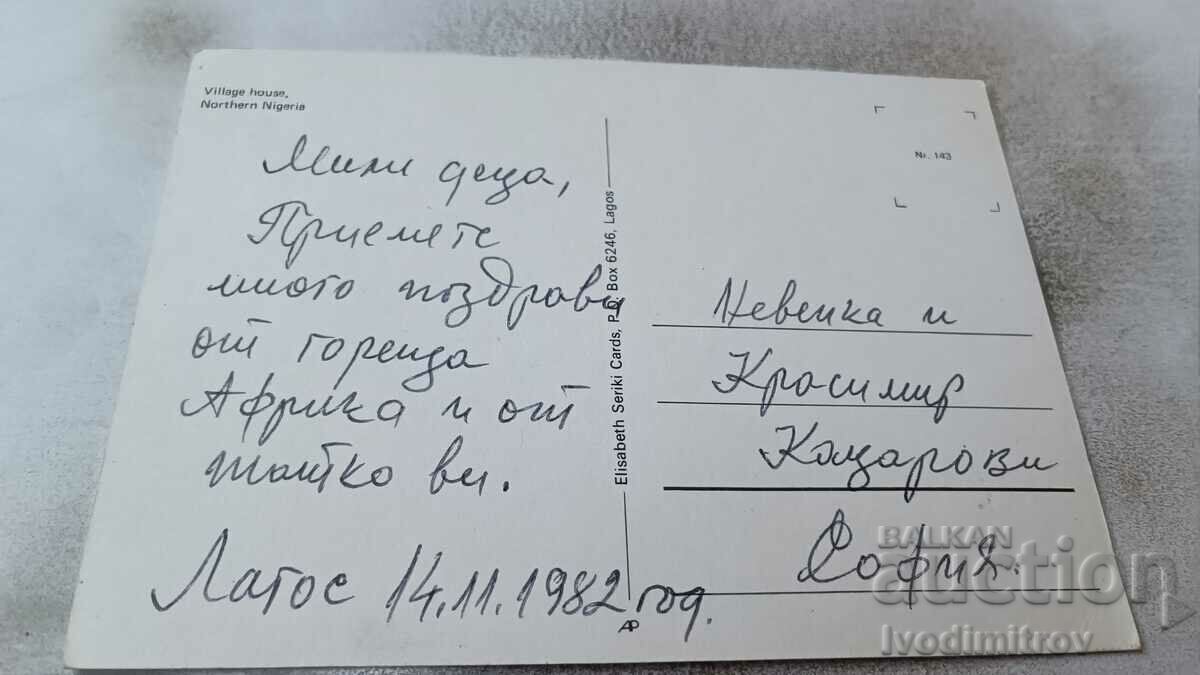 Village house,
Northern Nigeria
Мили деца,
Приемете
много поздрави
от гореща
Африка и от
татко ви.
Лагос 14.11.1982 год.
Elisabeth Seriki Cards, P.O. Box 6246, Lagos
AP
Nr. 143
Невенка и
Красимир
Кацарови
София.
BALKAN
auction
Ivodimitrov